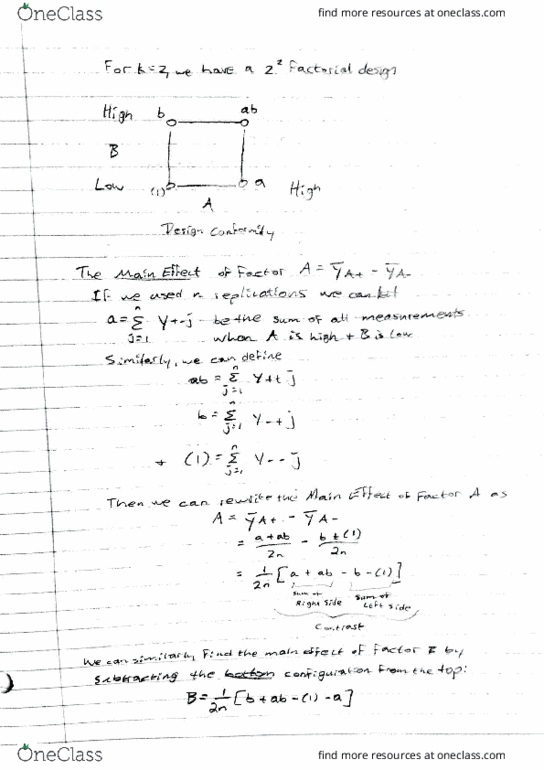 OneClass find more resources at oneclass.com
For k=2, we have a 2² Factorial design
High b ab
B
Low (1) a High
A
Design Conformity
The Main Effect of Factor A = ȲA+ - ȲA-
If we used n replications we can let
a = Σ Y+-j be the sum of all measurements
j=1 n when A is high + B is low
Similarly, we can define
ab = Σ Y++j
j=1 n
b = Σ Y-+j
j=1 n
+ (1) = Σ Y--j
j=1 n
Then we can rewrite the Main Effect of Factor A as
A = ȲA+ - ȲA-
= a+ab/2n - b+(1)/2n
= 1/2n [a + ab - b - (1)]
Sum of Right Side Sum of Left Side
Contrast
We can similarly find the main effect of Factor B by
subtracting the bottom configuration from the top:
B = 1/2n [b + ab - (1) - a]
OneClass find more resources at oneclass.com